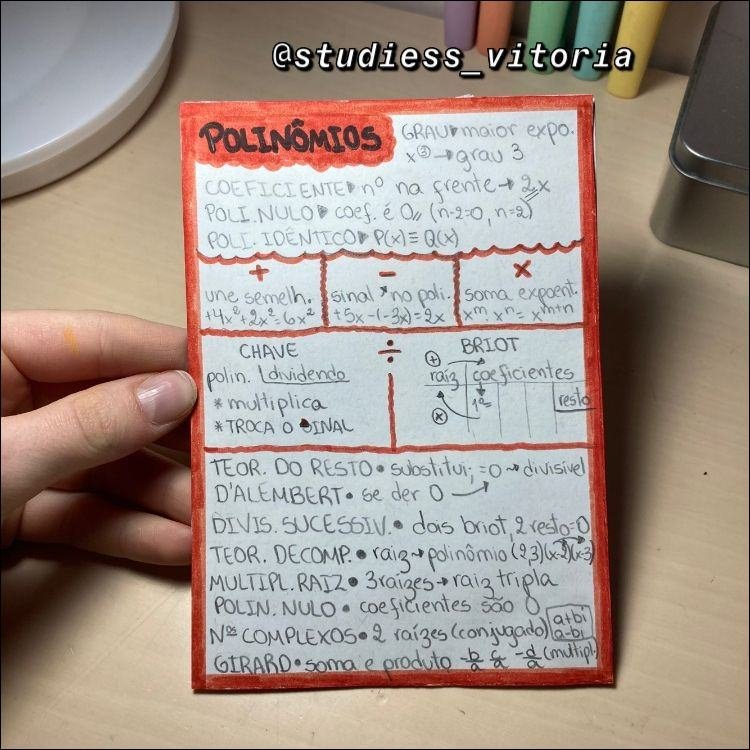 @studiess_vitoria
POLINÔMIOS
GRAU▶maior expo.
x³→grau 3
COEFICIENTE▶nº na frente→2x
POLI.NULO▶coef. é 0 (n-2=0, n=2)
POLI. IDÊNTICO▶P(x)≡Q(x)
+
une semelh.
+4x²+2x²=6x²
-
sinal - no poli.
+5x-(-3x)=2x
x
soma expoent.
xᵐ.xⁿ=xᵐ⁺ⁿ
÷
CHAVE
polin. dividendo
*multiplica
*TROCA O SINAL
BRIOT
+
raiz coeficientes
1º
resto
x
TEOR. DO RESTO• substitui; =0⇝divisível
D'ALEMBERT• se der 0
DIVIS. SUCESSIV.• dois briot, 2 resto=0
TEOR. DECOMP.• raiz→polinômio (2,3)(x-2)(x-3)
MULTIPL.RAIZ• 3raizes→raiz tripla
POLIN. NULO• coeficientes são 0
Nºˢ COMPLEXOS• 2 raízes (conjugado) a+bi
a-bi
GIRARD• soma e produto -b/a c/a -d/a (multipl.)